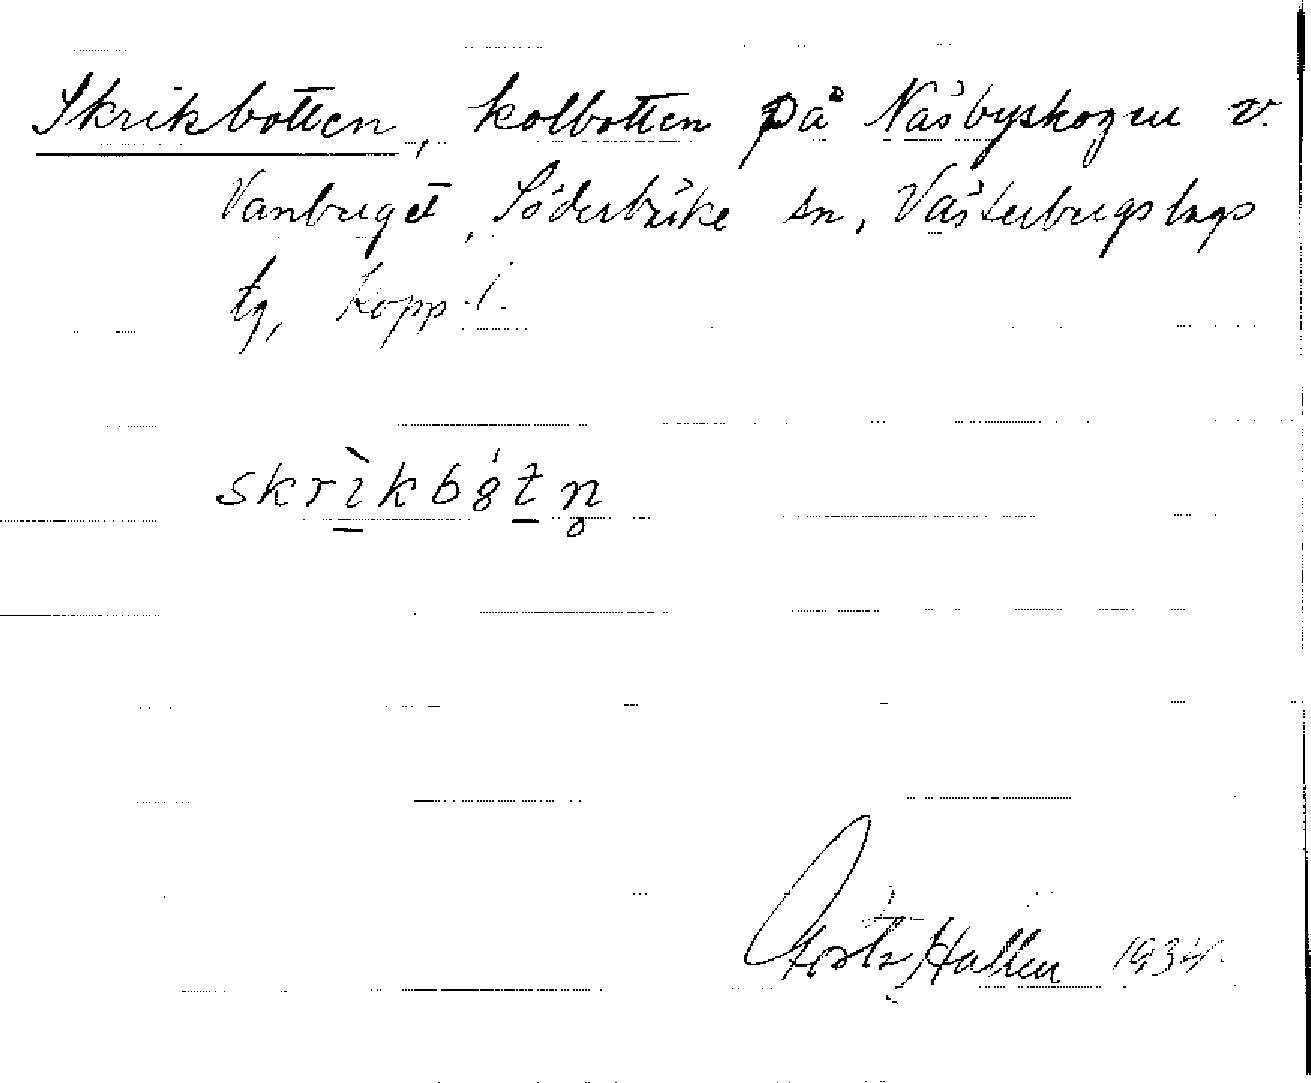 Skrikbotten, kolbotten på Näsbyskogen v.
Vanberget, Söderbärke sn, Västerbergslags
tg, Kopp. l.
skrìkbȣ́tn̥
Gösta Hallén 1934.